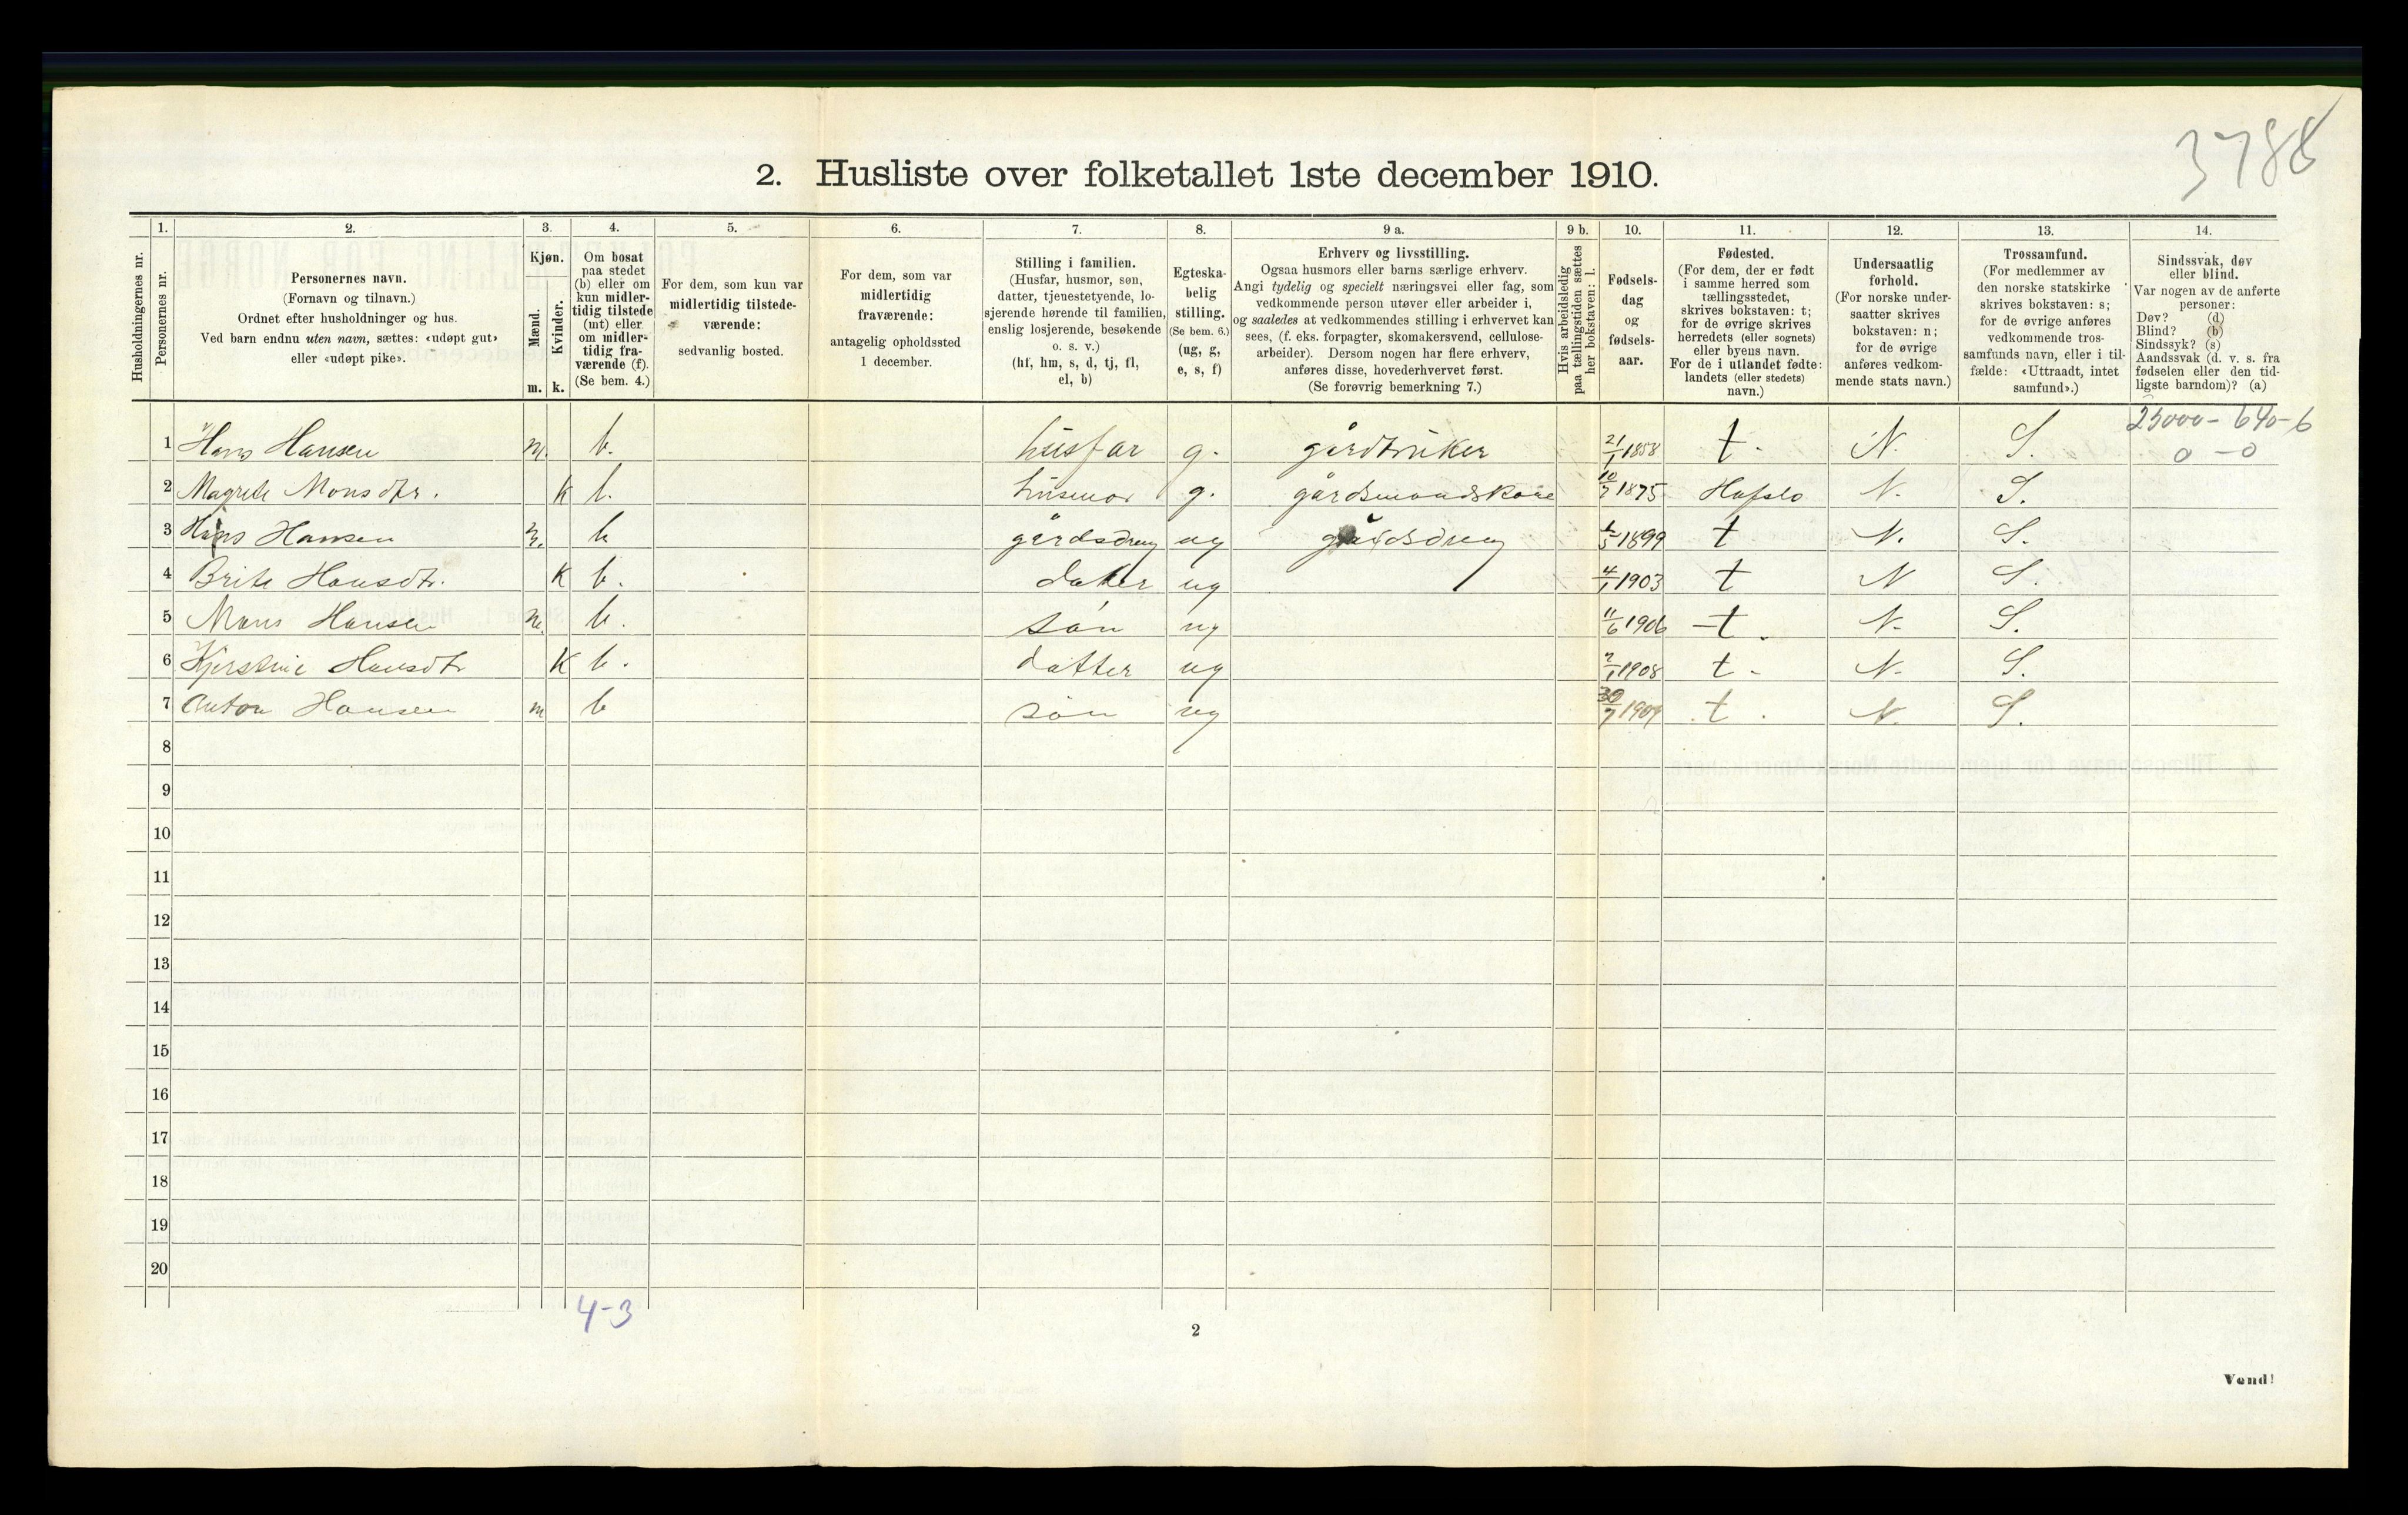 3788
2. Husliste over folketallet 1ste december 1910.
Husholdningernes nr.
1.
Personernes nr.
2.
Personernes navn.
(Fornavn og tilnavn.)
Ordnet efter husholdninger og hus.
Ved barn endnu uten navn, sættes: «udøpt gut»
eller «udøpt pike».
3.
Kjøn.
Mænd.
m.
Kvinder.
k.
4.
Om bosat
paa stedet
(b) eller om
kun midler-
tidig tilstede
(mt) eller
om midler-
tidig fra-
værende (f).
(Se bem. 4.)
5.
For dem, som kun var
midlertidig tilstede-
værende:
sedvanlig bosted.
6.
For dem, som var
midlertidig
fraværende:
antagelig opholdssted
1 december.
7.
Stilling i familien.
(Husfar, husmor, søn,
datter, tjenestetyende, lo-
sjerende hørende til familien,
enslig losjerende, besøkende
o. s. v.)
(hf, hm, s, d, tj, fl,
el, b)
8.
Egteska-
belig
stilling.
(Se bem. 6.)
(ug, g,
e, s, f)
9 a.
Erhverv og livsstilling.
Ogsaa husmors eller barns særlige erhverv.
Angi tydelig og specielt næringsvei eller fag, som
vedkommende person utøver eller arbeider i,
og saaledes at vedkommendes stilling i erhvervet kan
sees, (f. eks. forpagter, skomakersvend, cellulose-
arbeider). Dersom nogen har flere erhverv,
anføres disse, hovederhvervet først.
(Se forøvrig bemerkning 7.)
9 b.
Hvis arbeidsledig
paa tællingstiden sættes
her bokstaven: l.
10.
Fødsels-
dag
og
fødsels-
aar.
11.
Fødested.
(For dem, der er født
i samme herred som
tællingsstedet,
skrives bokstaven: t;
for de øvrige skrives
herredets (eller sognets)
eller byens navn.
For de i utlandet fødte:
landets (eller stedets)
navn.)
12.
Undersaatlig
forhold.
(For norske under-
saatter skrives
bokstaven: n;
for de øvrige
anføres vedkom-
mende stats navn.)
13.
Trossamfund.
(For medlemmer av
den norske statskirke
skrives bokstaven: s;
for de øvrige anføres
vedkommende tros-
samfunds navn, eller i til-
fælde: «Uttraadt, intet
samfund».)
14.
Sindssvak, døv
eller blind.
Var nogen av de anførte
personer:
Døv? (d)
Blind? (b)
Sindssyk? (s)
Aandssvak (d. v. s. fra
fødselen eller den tid-
ligste barndom)? (a)
25000 - 640 - 6
0 - 0
1 Hans Hansen m. b. husfar g. gårdbruker 21/1 1858 t. N. S.
2 Magrete Monsdtr. K b. husmor g. gårdsmandskone 10/7 1875 Hafslo N. S.
3 Hans Hansen m. b gårdsdreng ug gårdsdreng 1899 t N. S.
4 Brita Hansdtr. K b. datter ug 4/1 1903 t N S.
5 Mons Hansen m. b. søn ug 11/6 1906 t. N. S.
6 Kjerstine Hansdtr K b. datter ug 2/1 1908 t. N. S.
7 Anton Hansen m b søn ug 30/7 1909 t. N. S.
8
9
10
11
12
13
14
15
16
17
18
19
20
4-3
2
Vend!